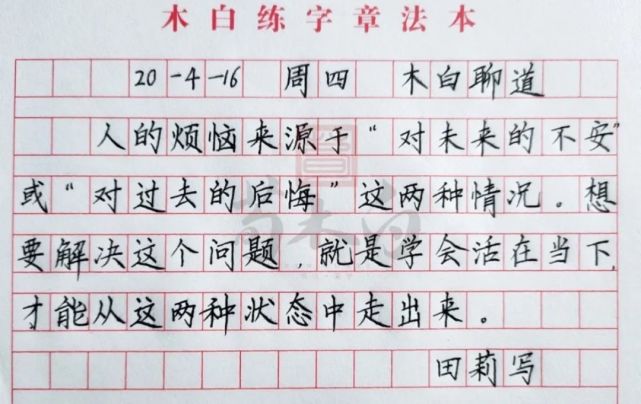 木白练字章法本
20-4-16 周四 木白聊道
人的烦恼来源于“对未来的不安”
或“对过去的后悔”这两种情况。想
要解决这个问题,就是学会活在当下,
才能从这两种状态中走出来。
田莉写